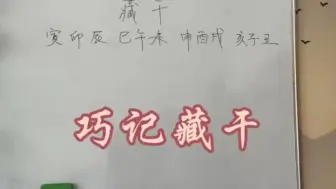 藏干
寅卯辰 巳午未 申酉戌 亥子丑
巧记藏干